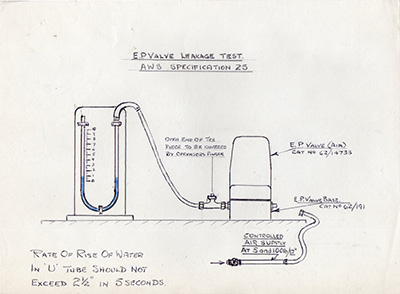 E.P VALVE LEAKAGE TEST.
AWS SPECIFICATION 25
OPEN END OF TEE
PIECE TO BE COVERED
BY OPERATORS FINGER
E.P VALVE (AIR)
CAT NO 62/14733
E.P. VALVE BASE
CAT NO 62/191
CONTROLLED
AIR SUPPLY
RATE OF RISE OF WATER
IN 'U' TUBE SHOULD NOT
EXCEED 2½" IN 5 SECONDS.